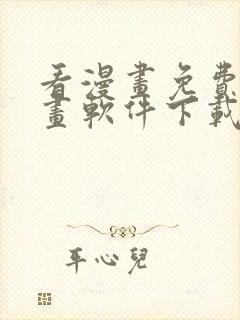 看漫畫免費
畫軟件下載
平心兒